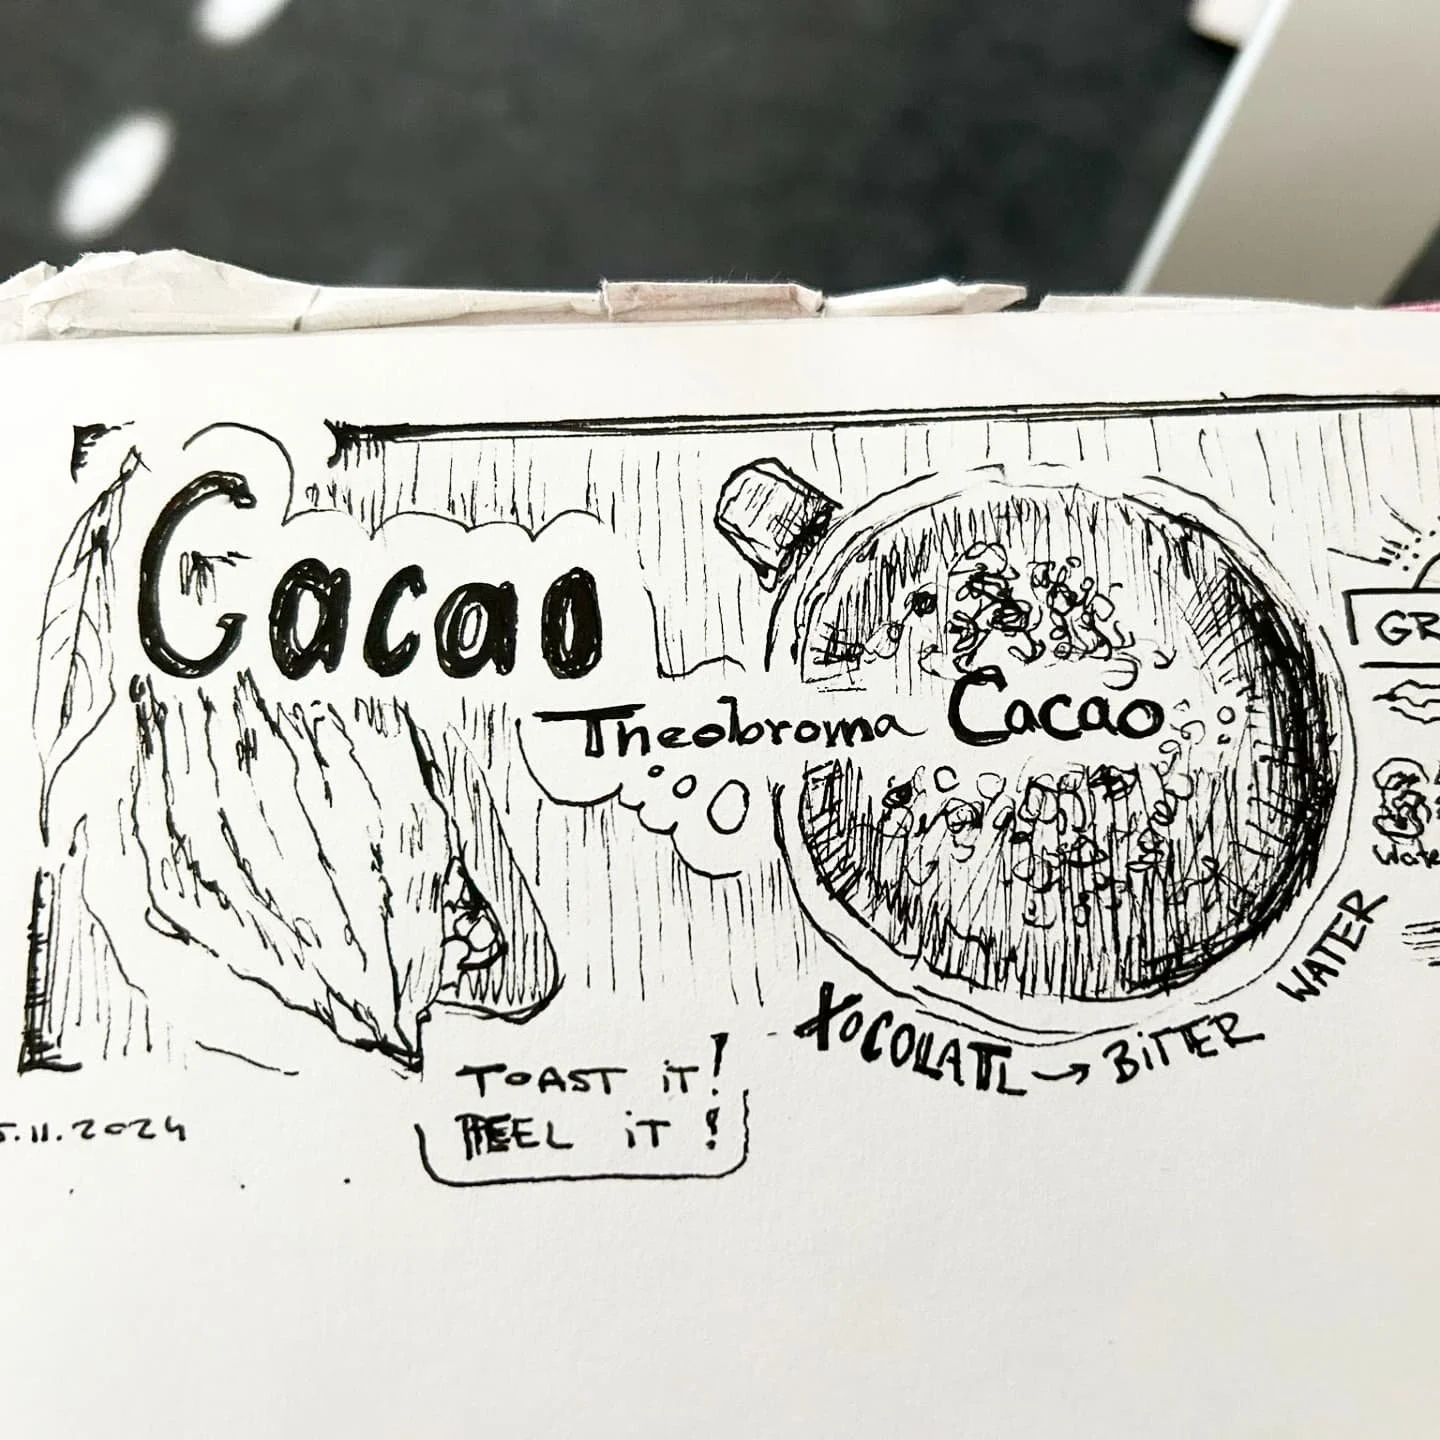 Cacao
Theobroma Cacao
XOCOLATL → BITTER WATER
TOAST iT!
PEEL iT!
5.11.2024
GR
Wate